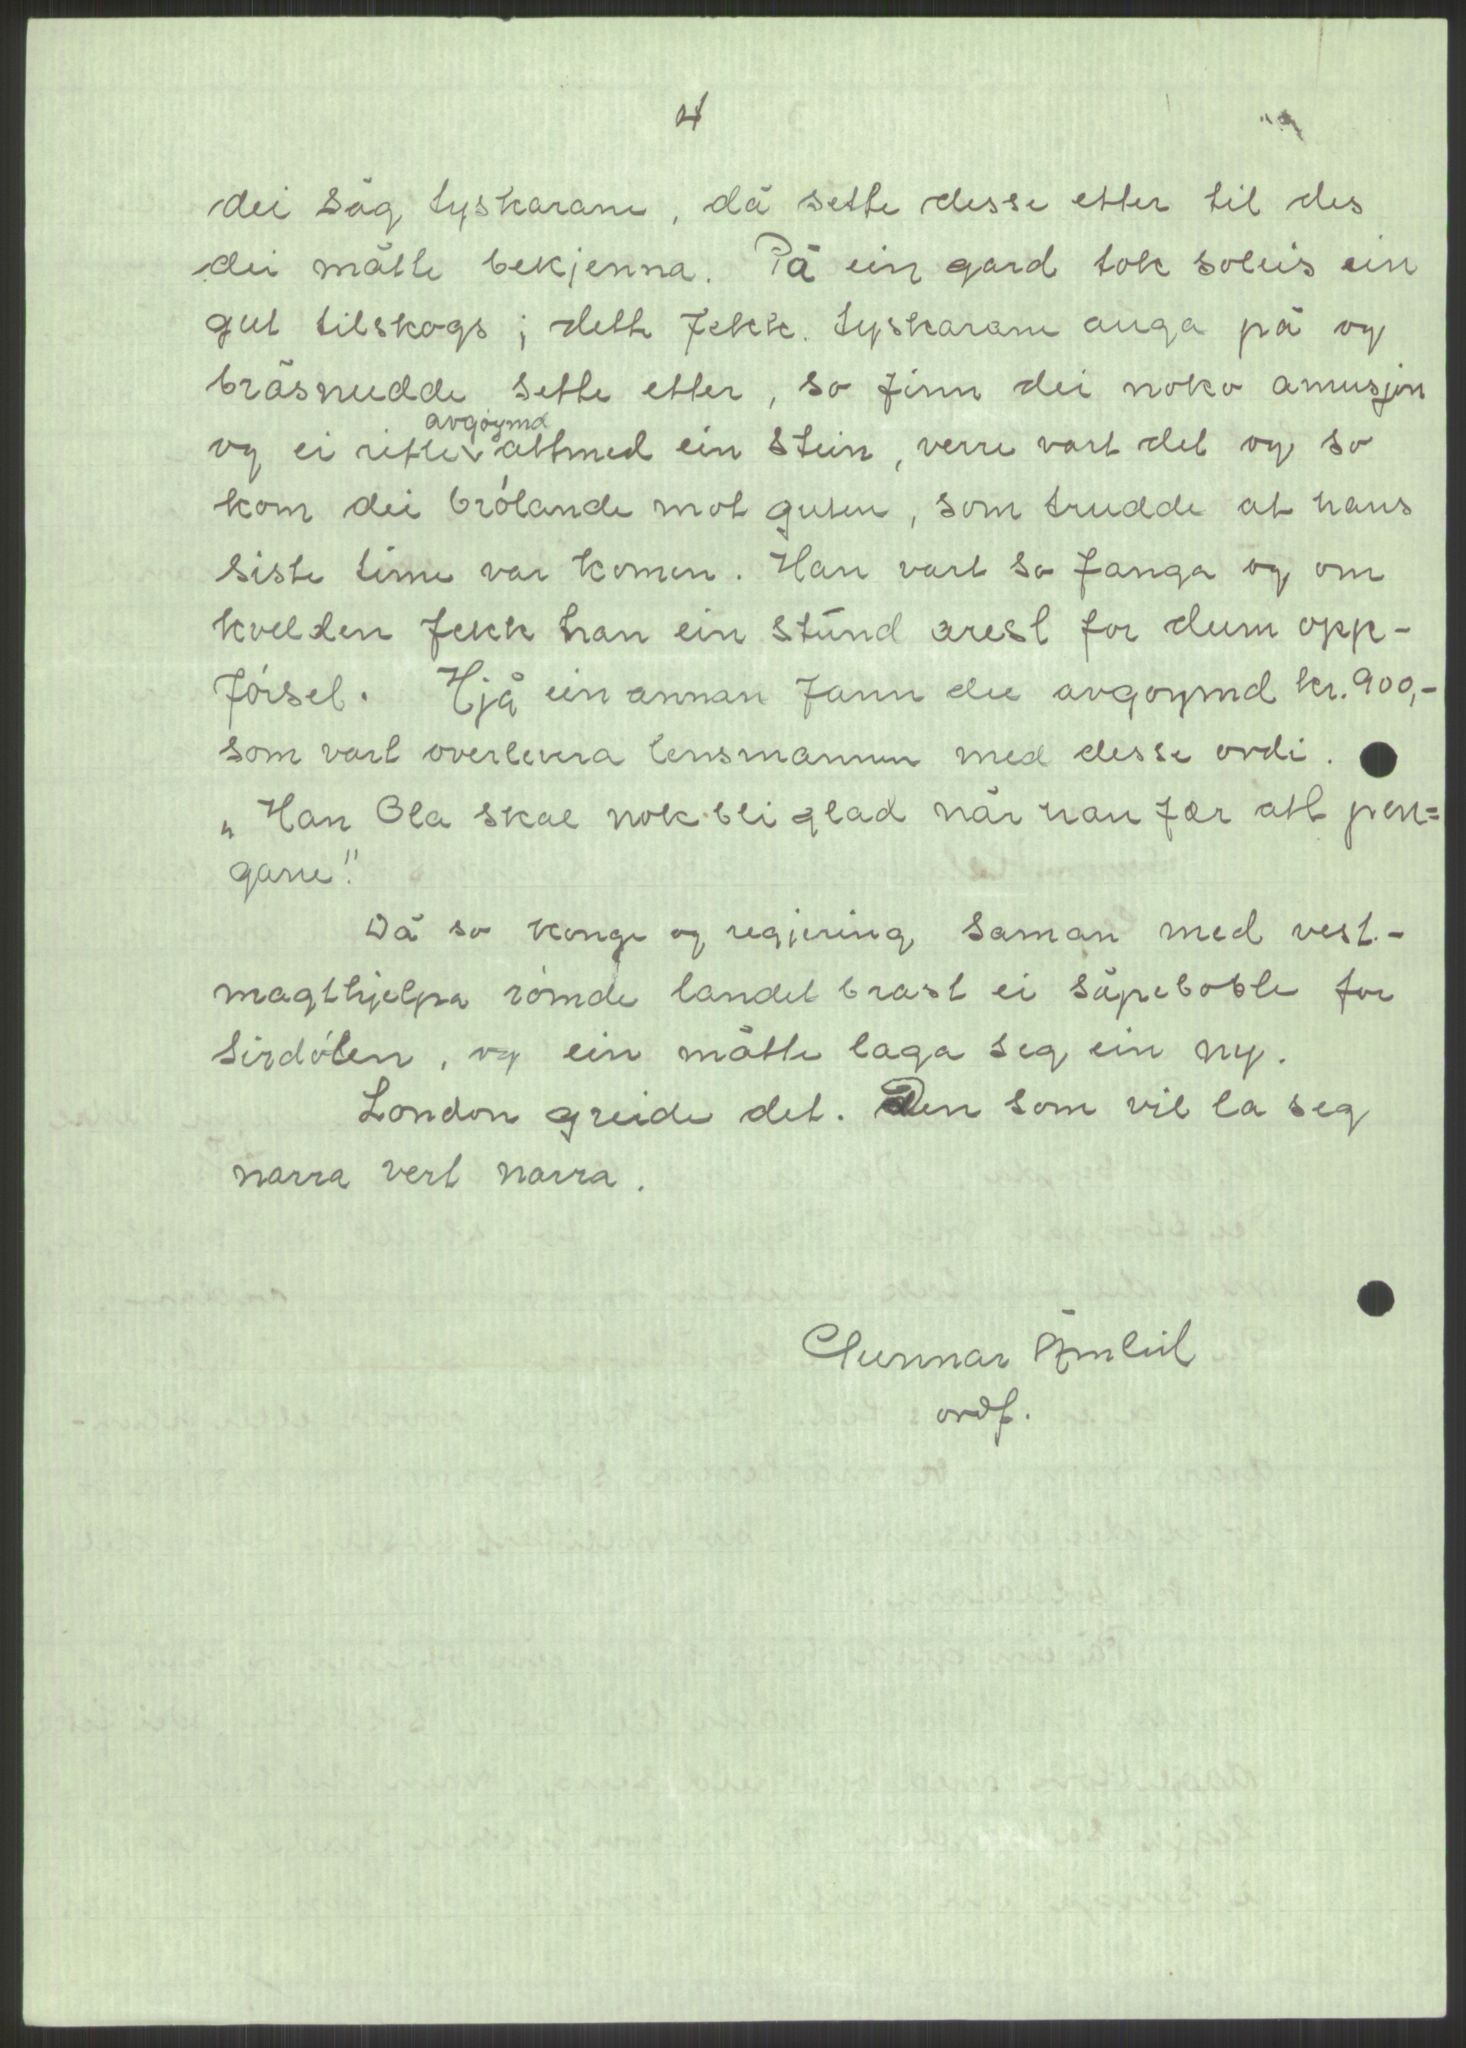 4
dei såg tyskarane, då sette desse etter til des
dei måtte bekjenna. På ein gard tok soleis ein
gut tilskogs; dette fekk tyskarane auga på og
bråsnudde sette etter, so finn dei noko amusjon
og ei rifle avgøymd attmed ein stein, verre vart det og so
kom dei brólande mot guten, som trudde at hans
siste time var komen. Han vart so fanga og om
kvelden fekk han ein stund arest for dum opp-
fórsel. Hjå ein annan fann dei avgøymd kr. 900,-
som vart overlevera lensmannen med desse ordi.
„Han Ola skal nok bli glad når han fær att pen=
gane".
Då so konge og regjering saman med vest-
magthjelpa rómde landet brast ei såpeboble for
sirdólen, og ein måtte laga seg ein ny.
London greide det. Den som vil la seg
narra vert narra.
Gunnar Åmlid
ordf.